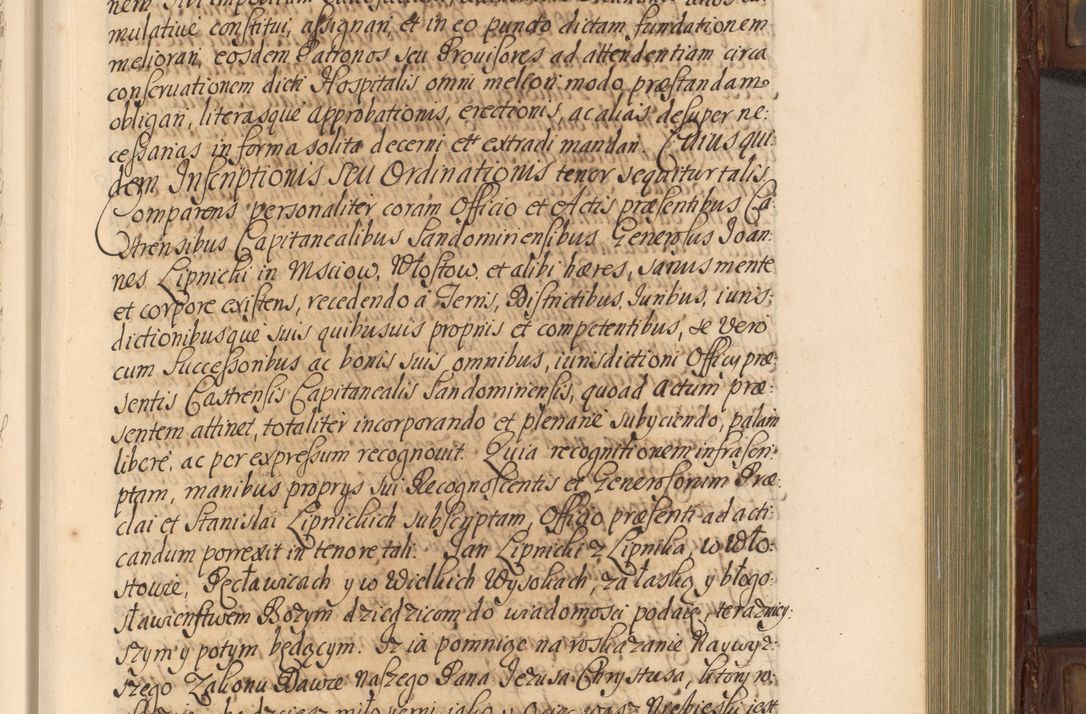 mulative constitui, assignari, et in eo puncto dictam fundationem
meliorari, eosdem Patronos seu Provisores ad attendentiam circa
conservationem dicti Hospitalis omni meliori modo præstandam
obligari, literasque approbationis, erectionis, ac alias desuper ne-
cessarias in forma solita decerni et extradi mandari. Cuius qui-
dem Inscriptionis seu Ordinationis tenor sequitur talis
Comparens personaliter coram Officio et Actis præsentibus Ca-
strensibus Capitanealibus Sandomiriensibus Generosus Joan-
nes Lipnicki in Msciow, Włostow, et alibi hæres, sanus mente
et corpore existens, recedendo a Terris, Districtibus, Juribus, iuris-
dictionibusque suis quibusuis proprijs et competentibus, se vero
cum Successoribus ac bonis suis omnibus, iurisdictioni Officij præ-
sentis Castrensis Capitanealis Sandomiriensis, quoad actum præ-
sentem attinet, totaliter incorporando et plenarie subyciendo, palam
libere, ac per expressum recognovit. Quia recognitionem infrascri-
ptam, manibus proprijs sui Recognoscentis et Generosorum Præ-
clai et Stanislai Lipnickich subscriptam, Officio præsenti ad acti-
candum porrexit in tenore tali. Jan Lipnicki z Lipnika, w Wło-
stowie, Pęcławicach y w Wielkich Wysokach, za łaską y błogo-
sławienstwem Bozym dziedzicem do wiadomosci podaię, terazniey-
szym y potym będącym. Iz ia pomnige na roskazanie Naywyz-
szego Zakonu Dawce naszego Pana Jezusa Chrystusa, ktory ro-